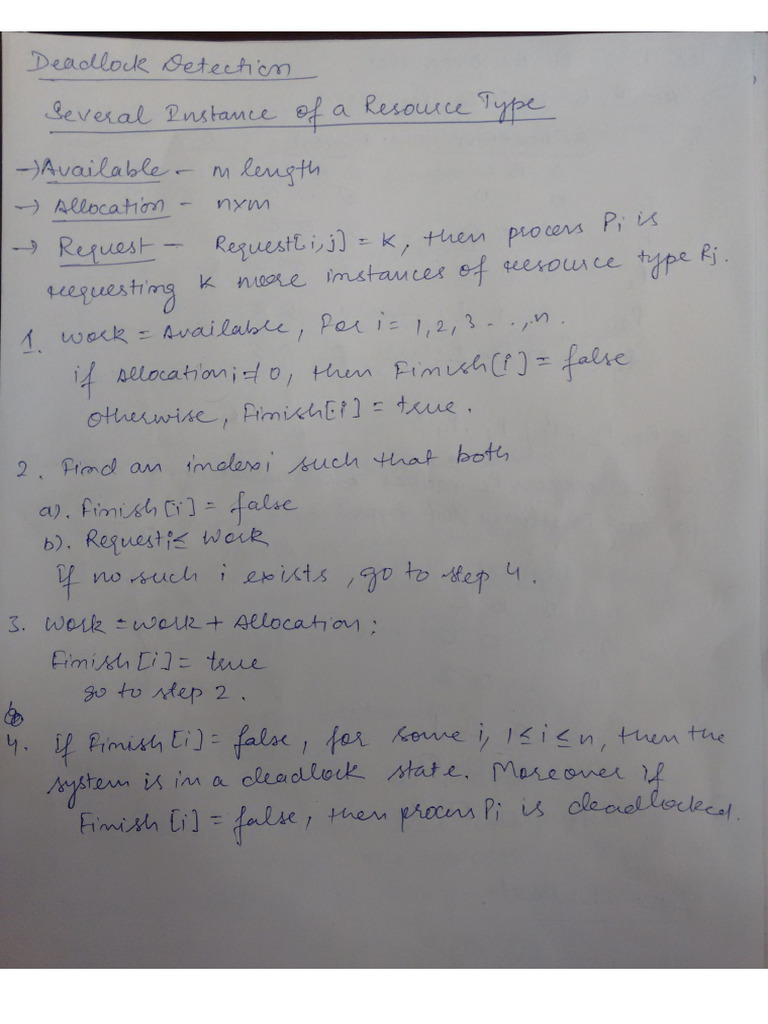 Deadlock Detection
Several Instance of a Resource Type
→ Available - m length
→ Allocation - nxm
→ Request - Request[i,j] = K, then process Pi is
requesting K more instances of resource type Rj.
1. Work = Available, For i = 1,2,3 - . . ,n.
if Allocationi ≠ 0, then Finish[i] = false
otherwise, Finish[i] = true.
2. Find an index i such that both
a). Finish[i] = false
b). Requesti ≤ Work
If no such i exists, go to step 4.
3. Work = Work + Allocationi
Finish[i] = true
go to step 2.
4. If Finish[i] = false, for some i, 1 ≤ i ≤ n, then the
system is in a deadlock state. Moreover if
Finish[i] = false, then process Pi is deadlocked.